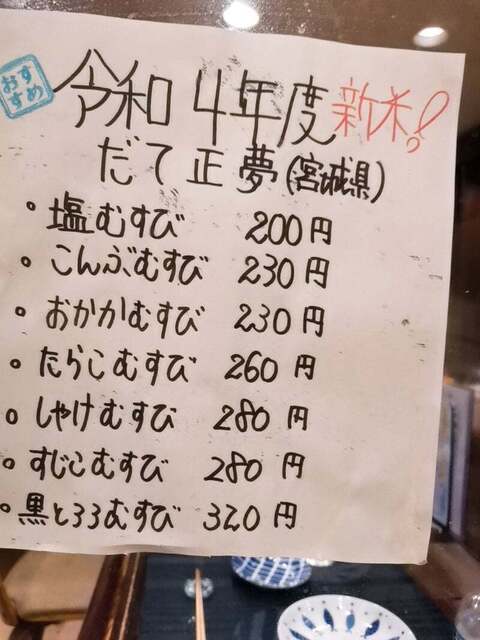 おすすめ
令和4年度 新米!
だて正夢(宮城県)
・塩むすび 200円
・こんぶむすび 230円
・おかかむすび 230円
・たらこむすび 260円
・しゃけむすび 280円
・すじこむすび 280円
・黒とろろむすび 320円